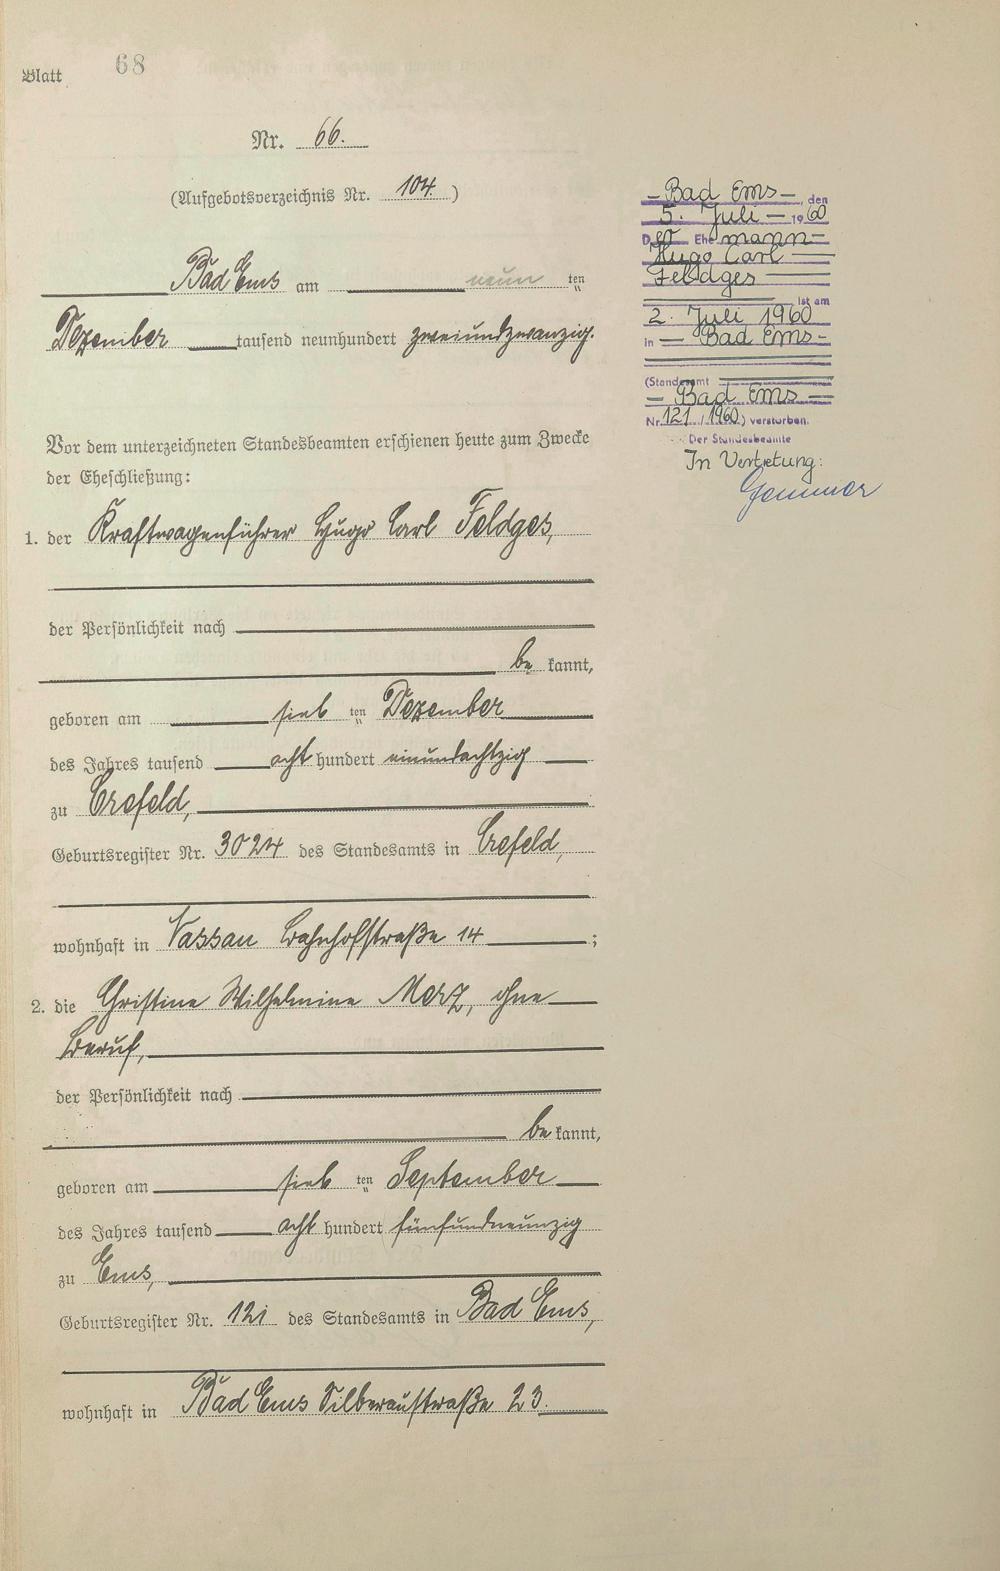 Blatt 68
Nr. 66.
(Aufgebotsverzeichnis Nr. 104.)
Bad Ems am neun ten
Dezember tausend neunhundert zweiundzwanzig.
Vor dem unterzeichneten Standesbeamten erschienen heute zum Zwecke
der Eheschließung:
1. der Kraftwagenführer Hugo Carl Feldges,
der Persönlichkeit nach
be kannt,
geboren am sieb ten Dezember
des Jahres tausend acht hundert einundachtzig
zu Crefeld,
Geburtsregister Nr. 3024 des Standesamts in Crefeld,
wohnhaft in Nassau Bahnhofstraße 14 ;
2. die Christine Wilhelmine Merz, ohne
Beruf,
der Persönlichkeit nach
be kannt,
geboren am sieb ten September
des Jahres tausend acht hundert fünfundneunzig
zu Ems,
Geburtsregister Nr. 121 des Standesamts in Bad Ems,
wohnhaft in Bad Ems Silberaustraße 23.
- Bad Ems -, den
5. Juli - 1960
Der Ehemann -
Hugo Carl
Feldges
ist am
2. Juli 1960
in - Bad Ems -
(Standesamt
- Bad Ems -
Nr. 121 / 1960) verstorben.
Der Standesbeamte
In Vertretung: